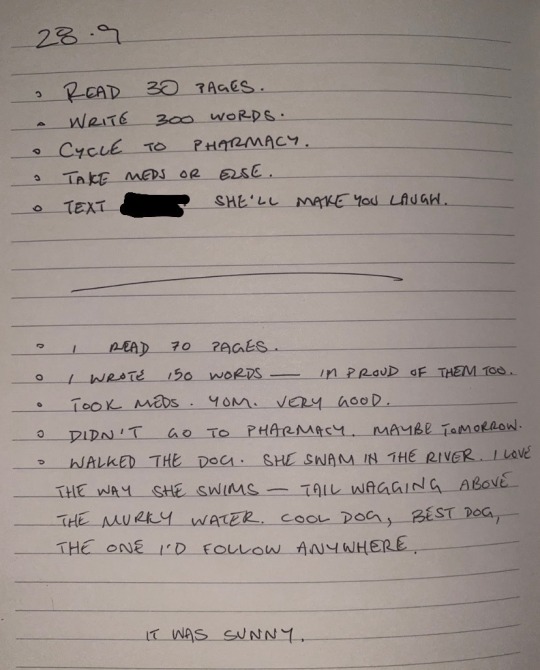 28.9
• READ 30 PAGES.
• WRITE 300 WORDS.
• CYCLE TO PHARMACY.
• TAKE MEDS OR ELSE.
• TEXT SHE'LL MAKE YOU LAUGH.
• I READ 70 PAGES.
• I WROTE 150 WORDS — IM PROUD OF THEM TOO.
• TOOK MEDS. YOM. VERY GOOD.
• DIDN'T GO TO PHARMACY. MAYBE TOMORROW.
• WALKED THE DOG. SHE SWAM IN THE RIVER. I LOVE
THE WAY SHE SWIMS — TAIL WAGGING ABOVE
THE MURKY WATER. COOL DOG, BEST DOG,
THE ONE I'D FOLLOW ANYWHERE.
IT WAS SUNNY.